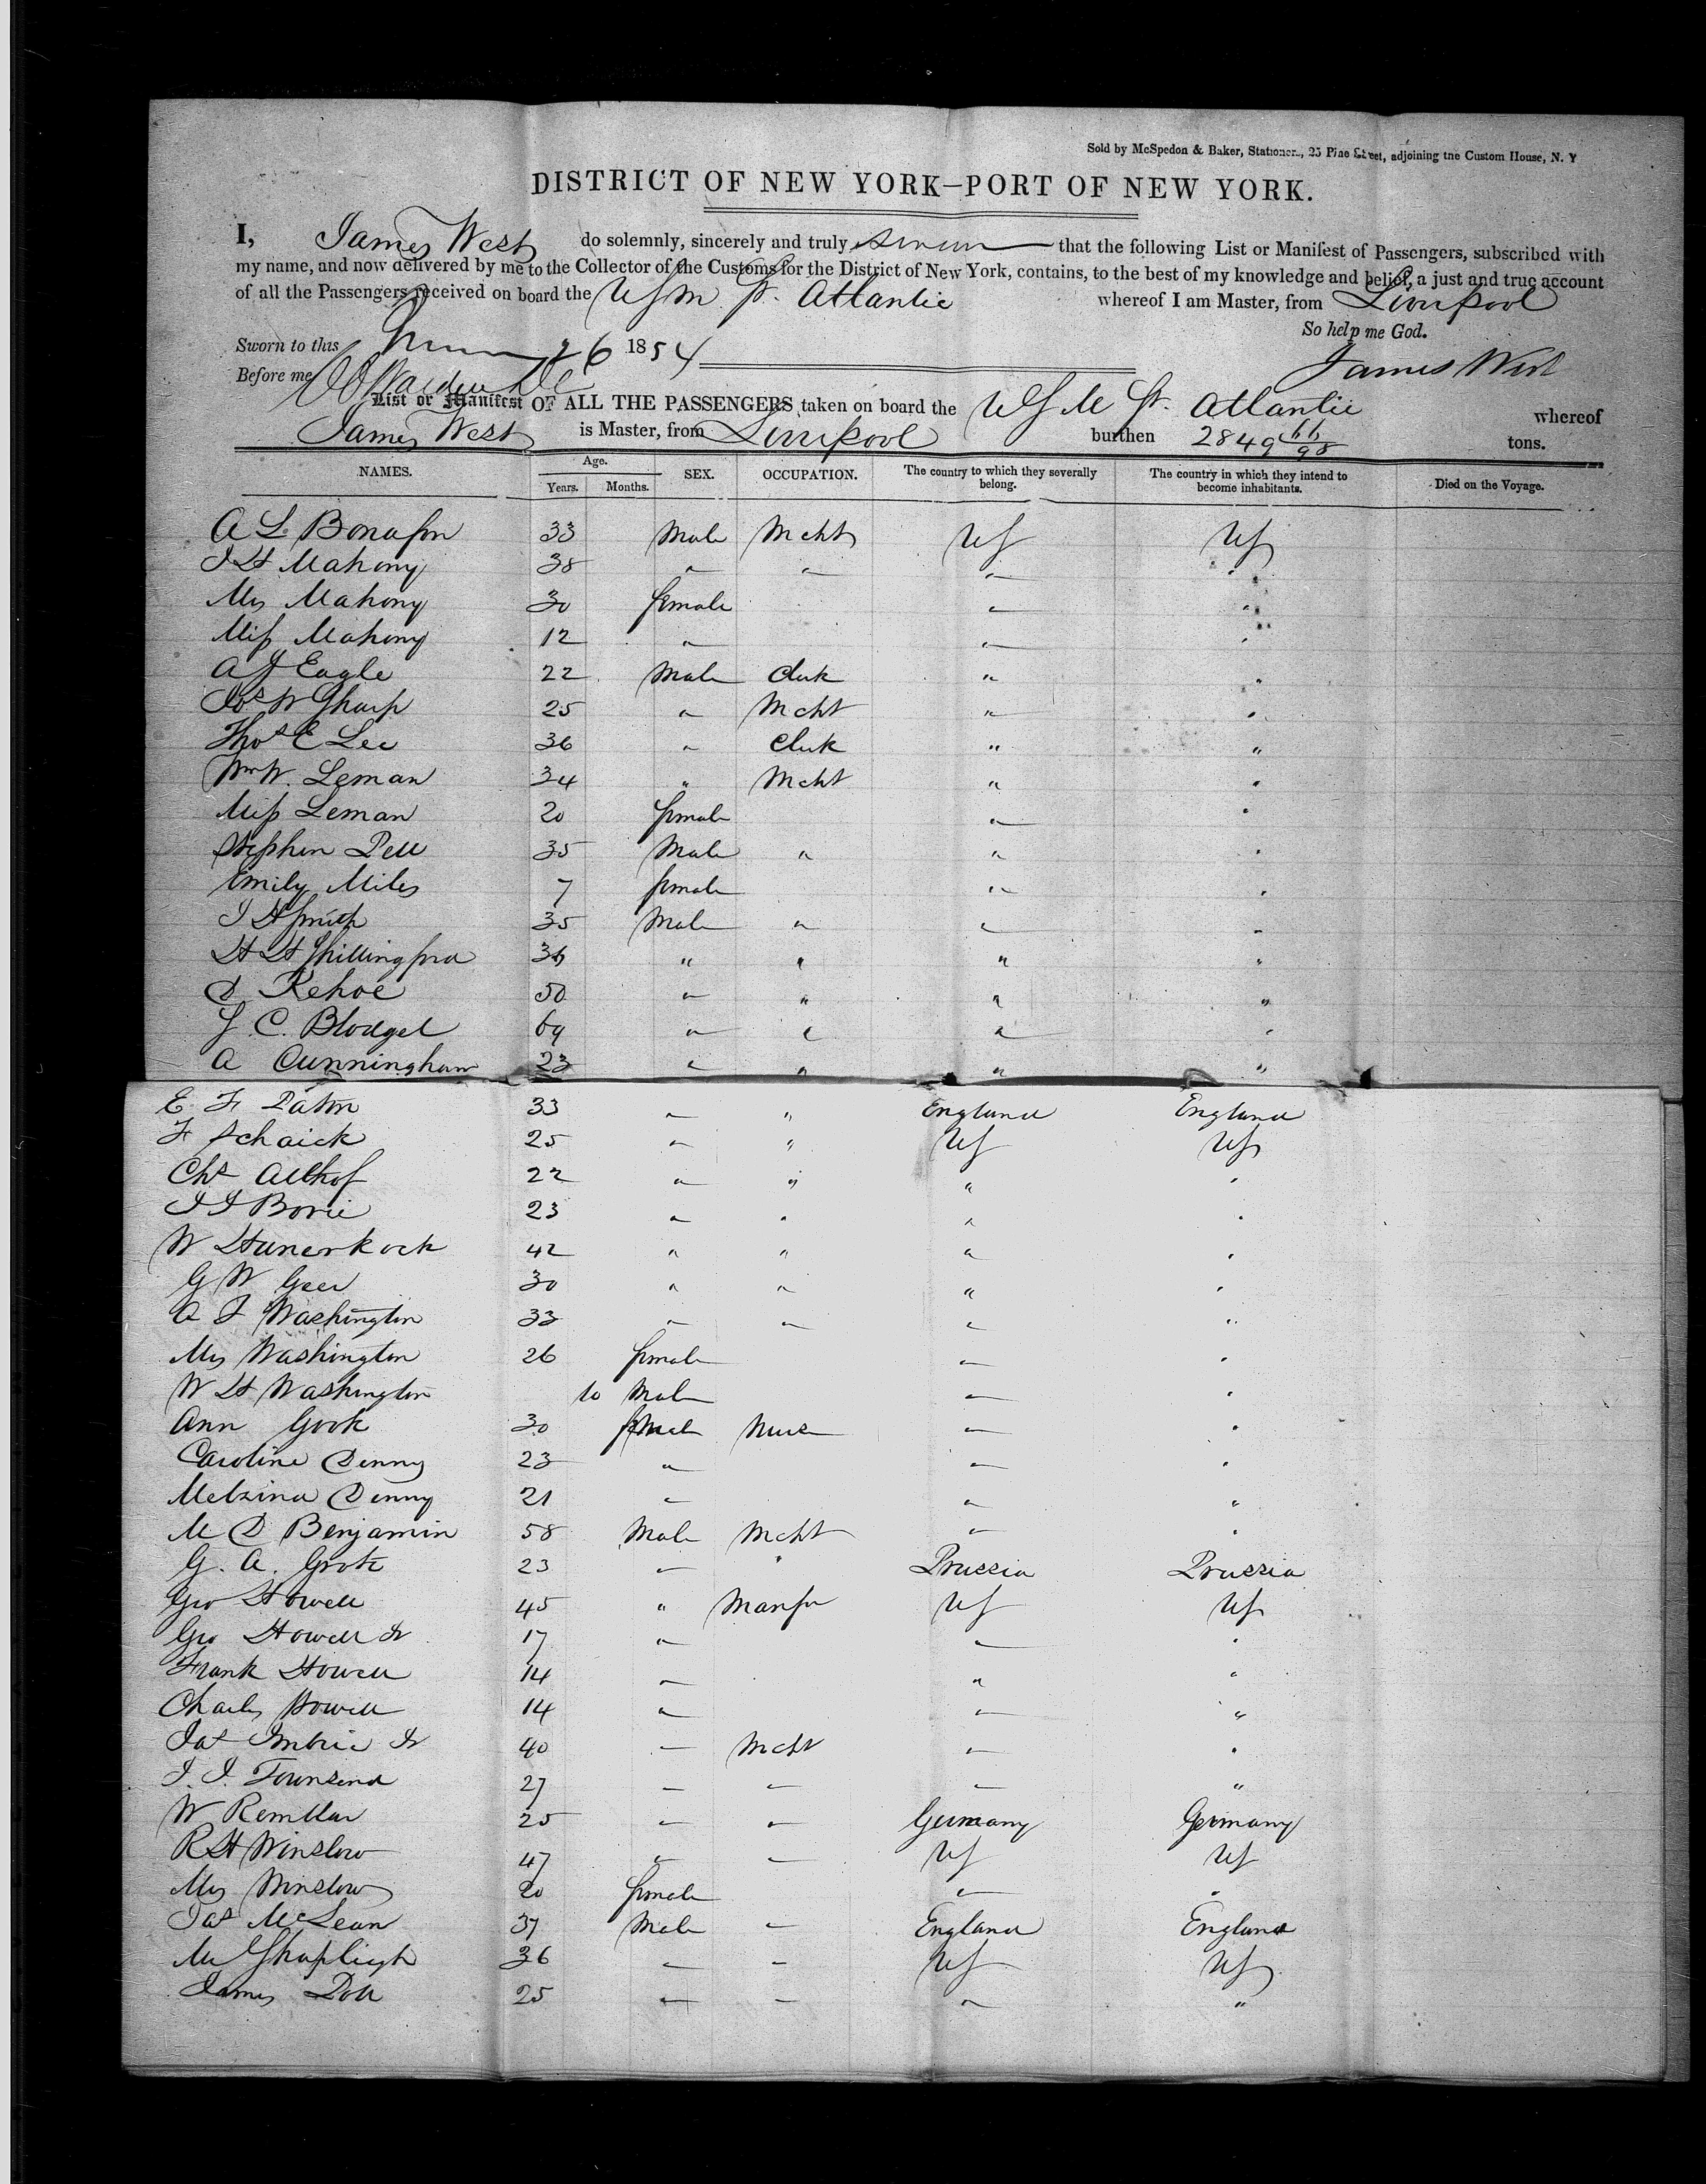 Sold by McSpedon & Baker, Stationers, 25 Pine Street, adjoining the Custom House, N. Y
DISTRICT OF NEW YORK—PORT OF NEW YORK.
I, James West do solemnly, sincerely and truly swear that the following List or Manifest of Passengers, subscribed with
my name, and now delivered by me to the Collector of the Customs for the District of New York, contains, to the best of my knowledge and belief, a just and true account
of all the Passengers received on board the USM St. Atlantic whereof I am Master, from Liverpool
So help me God.
Sworn to this 26 1854
James West
Before me
List or Manifest OF ALL THE PASSENGERS taken on board the USM St. Atlantic whereof
James West is Master, from Liverpool burthen 2849 66/98 tons.
NAMES. Age. Years. Months. SEX. OCCUPATION. The country to which they severally belong. The country in which they intend to become inhabitants. Died on the Voyage.
A L Bonafon 33 Male Mcht US US
J H Mahony 38 " " " "
Mrs Mahony 30 female " "
Miss Mahony 12 " " "
A J Eagle 22 Male Clerk " "
Jos W Sharp 25 " Mcht " "
Thos E Lee 36 " Clerk " "
Wm W. Leman 34 " Mcht " "
Miss Leman 20 female " "
Stephen Pell 35 Male " " "
Emily Miles 7 female " "
J H Smith 35 Male " " "
H H Shillingford 36 " " " "
D Kehoe 50 " " " "
S C. Blodget 69 " " " "
A Cunningham 23 " " " "
E F Paton 33 " " England England
F Schaick 25 " " US US
Chs Althof 22 " " " "
J J Borie 23 " " " "
W Hunerkock 42 " " " "
G W Geer 30 " " " "
A J Washington 33 " " " "
Mrs Washington 26 female " "
W H Washington 10 Male " "
Ann Gook 30 female Nurse " "
Caroline Denny 23 " " "
Melzina Denny 21 " " "
M D Benjamin 58 Male Mcht " "
G. A. Grote 23 " " Prussia Prussia
Geo Howell 45 " Manfr US US
Geo Howell Jr 17 " " "
Frank Howell 14 " " "
Charles Howell 14 " " "
Jas Imbrie Jr 40 " Mcht " "
J. J. Townsend 27 " " " "
W 25 " " Germany Germany
R H Winslow 47 " " US US
Mrs Winslow 20 female " "
Jas McLean 37 Male " England England
M Shapleigh 36 " " US US
James Doll 25 " " " "